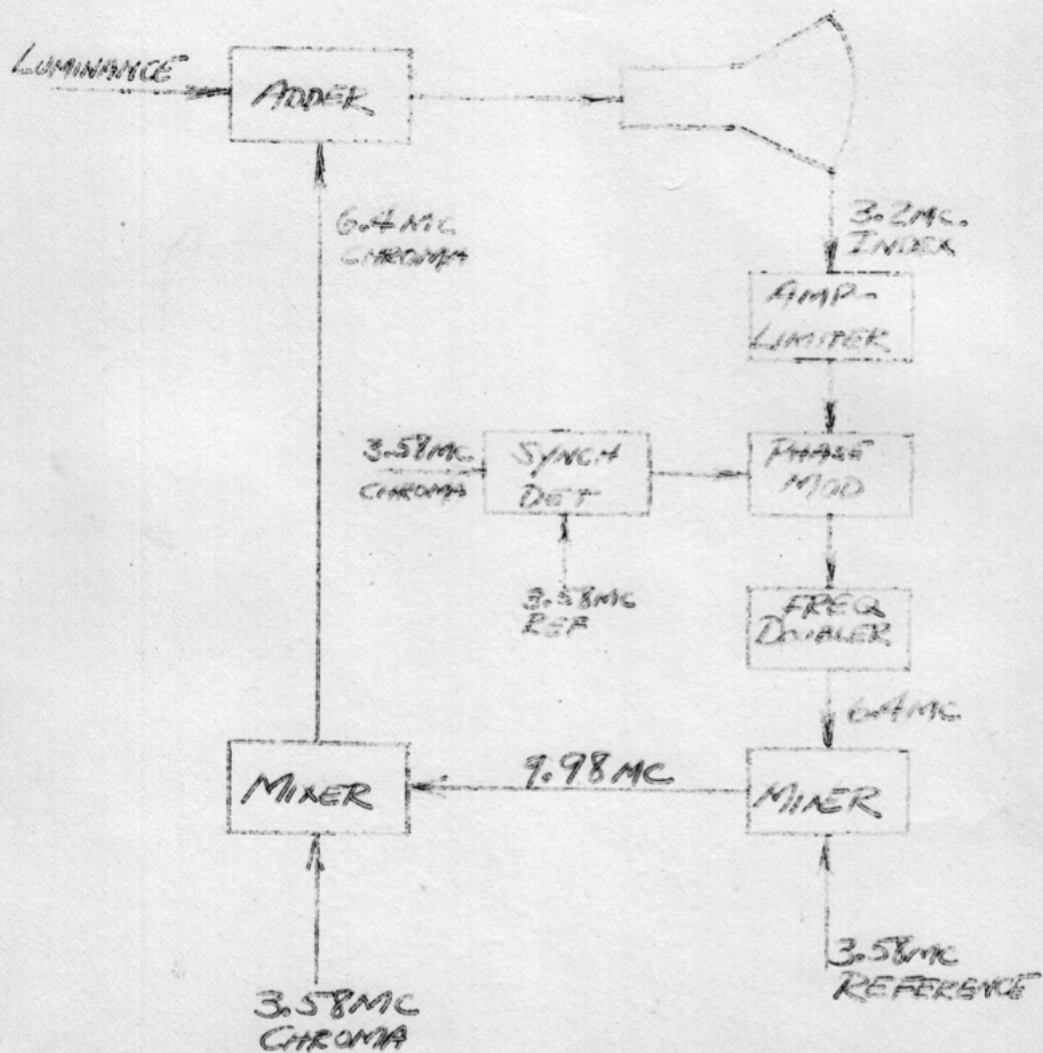 LUMINANCE
ADDER
6.4 MC
CHROMA
3.2 MC.
INDEX
AMP-
LIMITER
3.58 MC
CHROMA
SYNCH
DET
PHASE
MOD
3.58 MC
REF
FREQ
DOUBLER
6.4 MC
MIXER
9.98 MC
MIXER
3.58 MC
CHROMA
3.58 MC
REFERENCE